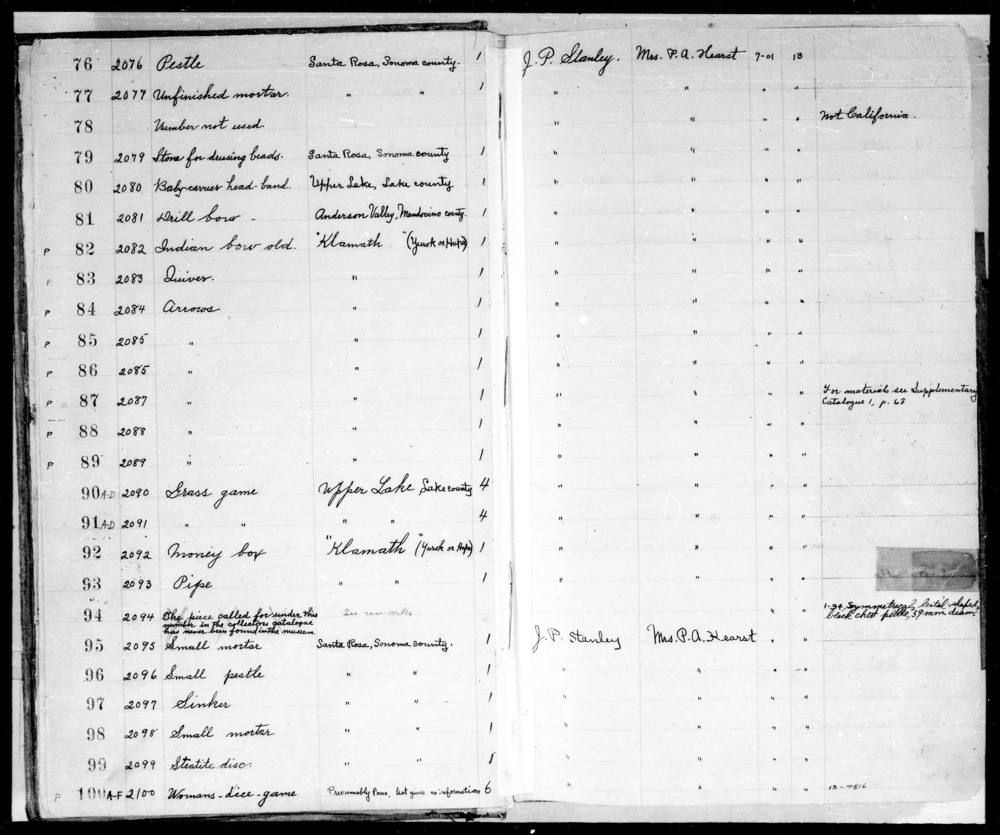 76 2076 Pestle Santa Rosa, Sonoma county. 1 J. P. Stanley. Mrs. P. A. Hearst 7-01 13
77 2077 Unfinished mortar. " " 1 " " " "
78 Number not used " " " " Not California.
79 2079 Stone for dressing beads. Santa Rosa, Sonoma county 1 " " " "
80 2080 Baby-carrier head-band. Upper Lake, Lake county 1 " " " "
81 2081 Drill bow - Anderson Valley, Mendocino county. 1 " " " "
P 82 2082 Indian bow old. "Klamath" (Yurok or Hupa) 1 " " " "
P 83 2083 Quiver. " 1 " " " "
P 84 2084 Arrows " 1 " " " "
P 85 2085 " " 1 " " " "
P 86 2085 " " 1 " " " "
P 87 2087 " " 1 " " " " For material see Supplementary
Catalogue 1, p. 63
P 88 2088 " " 1 " " " "
P 89 2089 " " 1 " " " "
90 A-D 2090 Grass game Upper Lake, Lake county 4 " " " "
91 A-D 2091 " " " " 4 " " " "
92 2092 Money box "Klamath" (Yurok or Hupa) 1 " " " "
93 2093 Pipe " " 1 " " " "
94 2094 The piece called for under this See remarks " " 1-94 Symmetrical, -shaped,
number in the collectors catalogue black chert pebble, 59 mm. diam.
has never been found in the museum.
95 2095 Small mortar Santa Rosa, Sonoma county. 1 J. P. Stanley Mrs. P. A. Hearst " "
96 2096 Small pestle " " 1 " " " "
97 2097 Sinker " " 1 " " " "
98 2098 Small mortar " " 1 " " " "
99 2099 Steatite disc. " " 1 " " " "
P 100 A-F 2100 Womans-dice-game Presumably Pomo, but gives no information 6 " " " " 15-4816